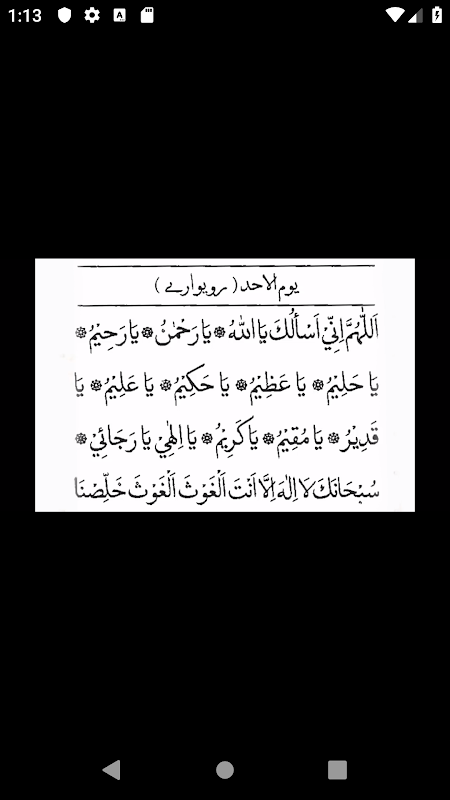 1:13
يوم الاحد ( رويوارے )
اَللّٰهُمَّ اِنِّيْ اَسْأَلُكَ يَا اَللّٰهُ ۞ يَا رَحْمٰنُ ۞ يَا رَحِيْمُ ۞
يَا حَلِيْمُ ۞ يَا عَظِيْمُ ۞ يَا حَكِيْمُ ۞ يَا عَلِيْمُ ۞ يَا
قَدِيْرُ ۞ يَا مُقِيْمُ ۞ يَا كَرِيْمُ ۞ يَا اِلٰهِيْ يَا رَجَائِيْ ۞
سُبْحَانَكَ لَا اِلٰهَ اِلَّا اَنْتَ اَلْغَوْثَ اَلْغَوْثَ خَلِّصْنَا